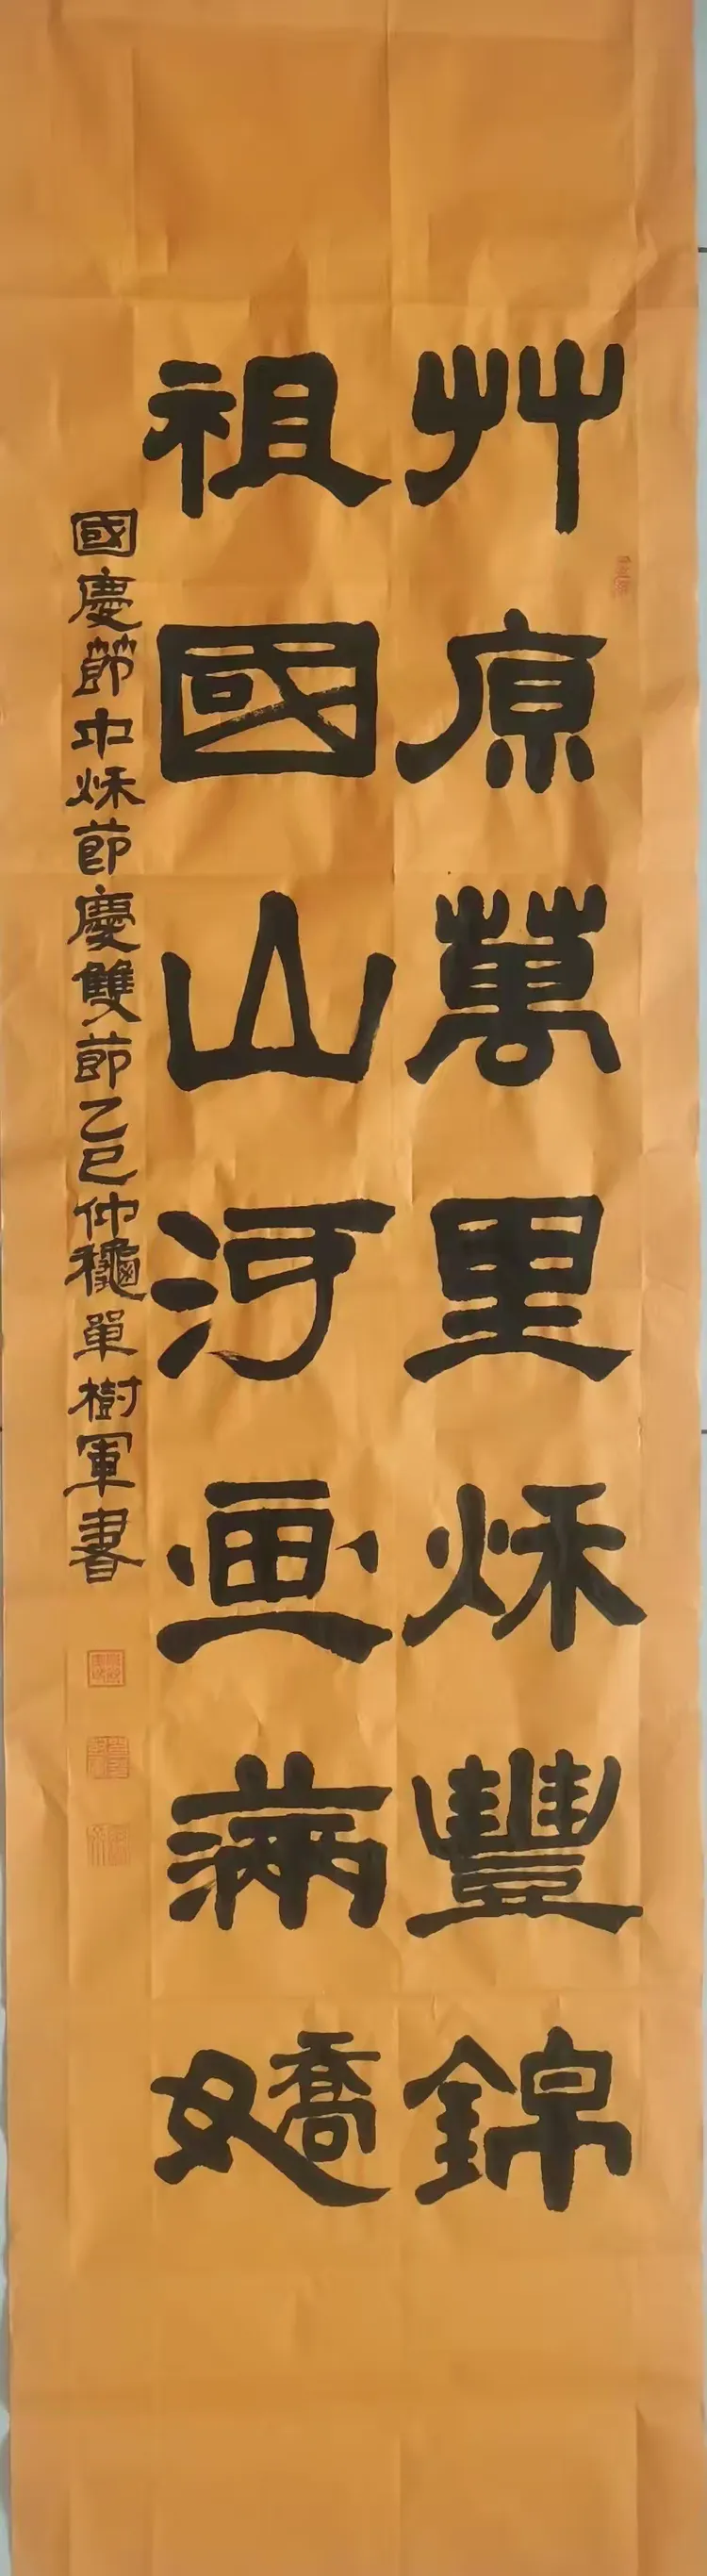 艸原萬里烁豐錦
祖國山河画滿嬌
國慶節中烁節慶雙節乙巳仲龝單樹軍書